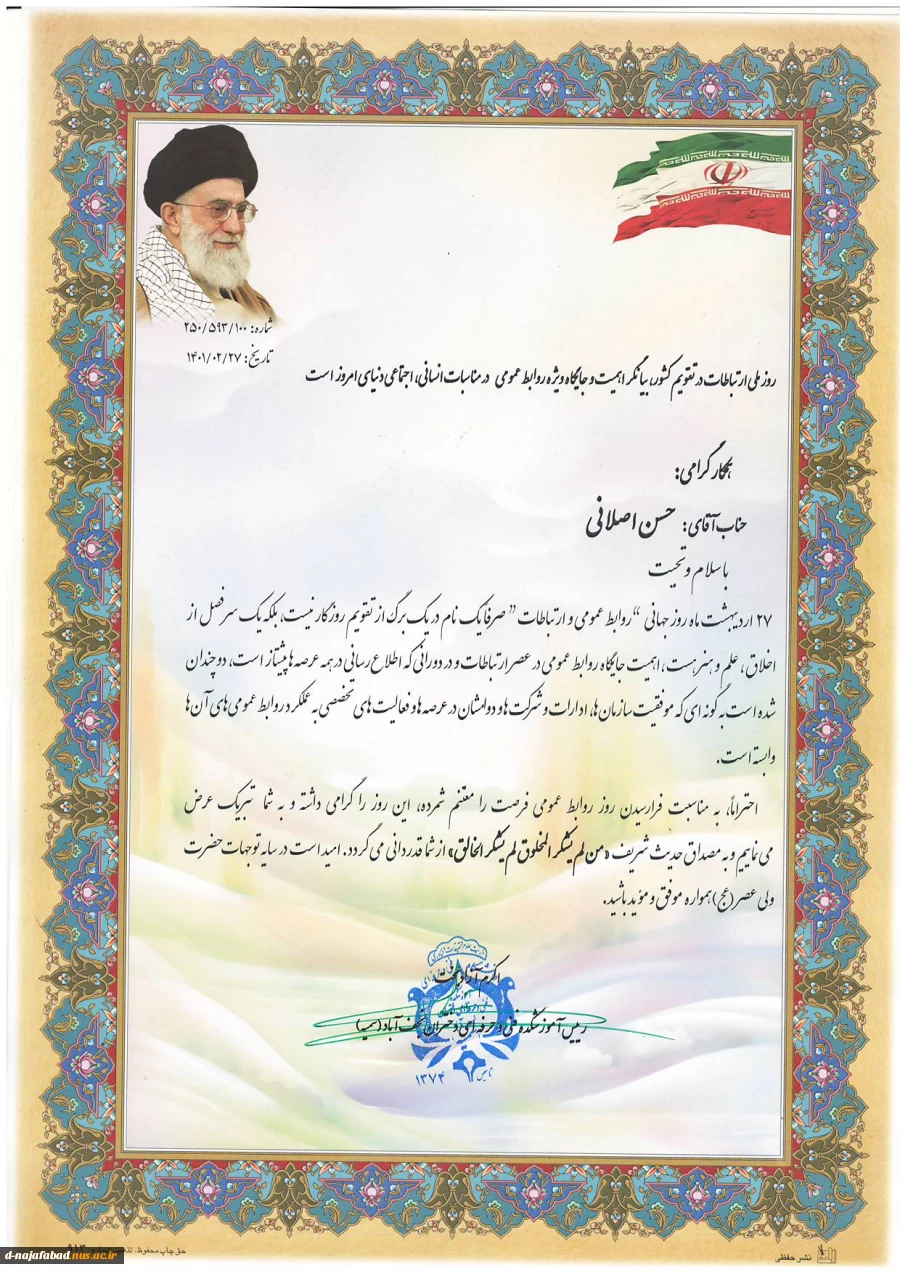 شماره: ۲۵۰/۵۹۳/۱۰۰
تاریخ: ۱۴۰۱/۰۲/۲۷
روز ملی ارتباطات در تقویم کشور، بیانگر اهمیت و جایگاه ویژه روابط عمومی در مناسبات انسانی، اجتماعی دنیای امروز است
همکار گرامی:
جناب آقای: حسن اصلانی
با سلام و تحیت
۲۷ اردیبهشت ماه روز جهانی “روابط عمومی و ارتباطات” صرفا یک نام در یک برگ از تقویم روزگار نیست، بلکه یک سر فصل از
اخلاق، علم و هنر هست، اهمیت جایگاه روابط عمومی در عصر ارتباطات و در دورانی که اطلاع رسانی در همه عرصه ها پیشتاز است، دو چندان
شده است به گونه ای که موفقیت سازمان ها، ادارات و شرکت ها و دولتشان در عرصه ها و فعالیت های تخصصی به عملکرد روابط عمومی های آن ها
وابسته است.
احتراماً، به مناسبت فرارسیدن روز روابط عمومی فرصت را مغتنم شمرده، این روز را گرامی داشته و به شما تبریک عرض
می نماییم و به مصداق حدیث شریف «من لم یشکر المخلوق لم یشکر الخالق» از شما قدردانی می گردد. امید است در سایه توجهات حضرت
ولی عصر (عج) همواره موفق و مؤید باشید.
اکرم آزادبخت
رییس آموزشکده فنی و حرفه ای دختران نجف آباد (سمیه)
تاسیس ۱۳۷۴
نشر حفظی
حق چاپ محفوظ.
d-najafabad.nus.ac.ir